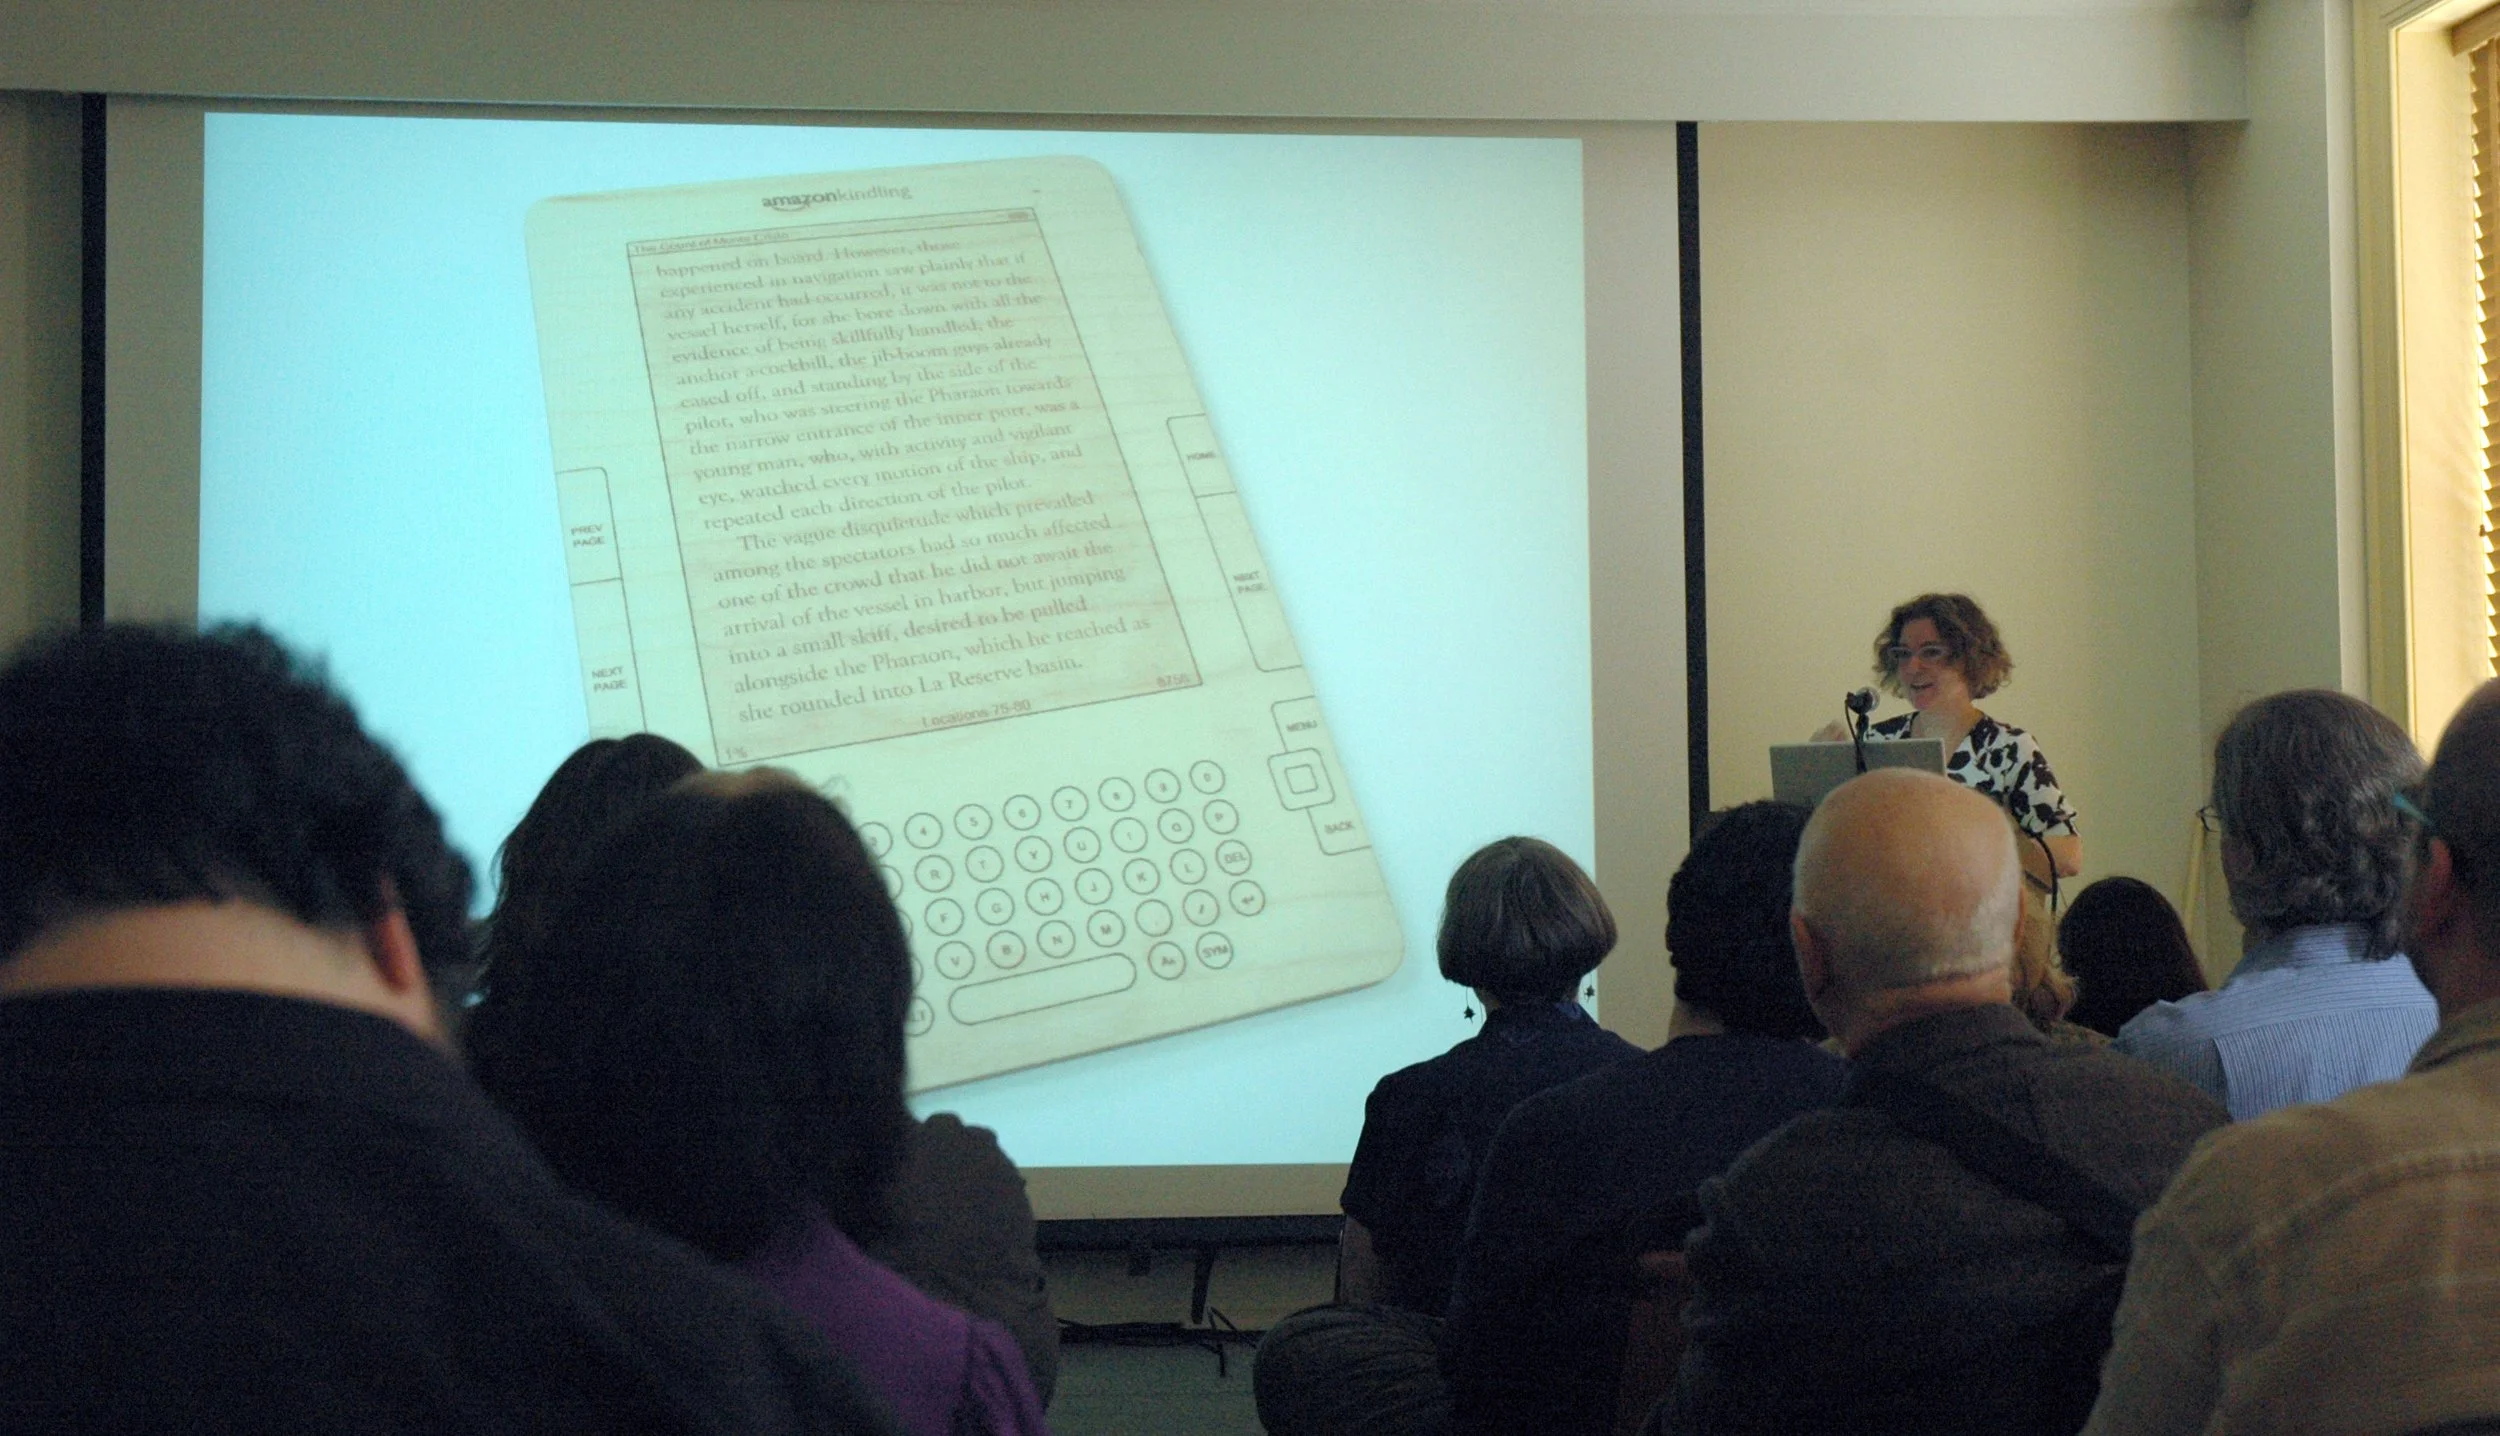 amazonkindling
The Count of Monte Cristo
happened on board. However, those
experienced in navigation saw plainly that if
any accident had occurred, it was not to the
vessel herself, for she bore down with all the
evidence of being skillfully handled, the
anchor a-cockbill, the jib-boom guys already
eased off, and standing by the side of the
pilot, who was steering the Pharaon towards
the narrow entrance of the inner port, was a
young man, who, with activity and vigilant
eye, watched every motion of the ship, and
repeated each direction of the pilot.
The vague disquietude which prevailed
among the spectators had so much affected
one of the crowd that he did not await the
arrival of the vessel in harbor, but jumping
into a small skiff, desired to be pulled
alongside the Pharaon, which he reached as
she rounded into La Reserve basin.
1%
Locations 75-80
8756
PREV
PAGE
NEXT
PAGE
HOME
NEXT
PAGE
MENU
BACK
3 4 5 6 7 8 9 0
R T Y U I O P
F G H J K L DEL
V B N M . / ↵
LT Aa SYM